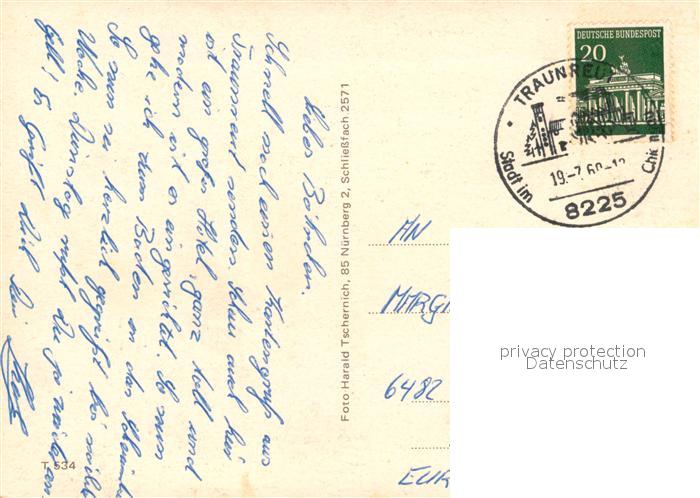 Lieber
Schnell noch einen Kartengruß aus
Traunreut senden. Schau auch hier
ist ein großes Hotel, ganz toll und
modern ist es eingerichtet. So nun
gehe ich zum Baden in das
So nun sei herzlich gegrüßt bei
Woche Dienstag rufst Du so
gell! Es grüßt Dich
Foto Harald Tschernich, 85 Nürnberg 2, Schließfach 2571
T 534
DEUTSCHE BUNDESPOST
20
TRAUNREU
Stadt im
Chiemgau
19.-7.68-12
8225
AN
MARGI
6482
EUR
privacy protection
Datenschutz